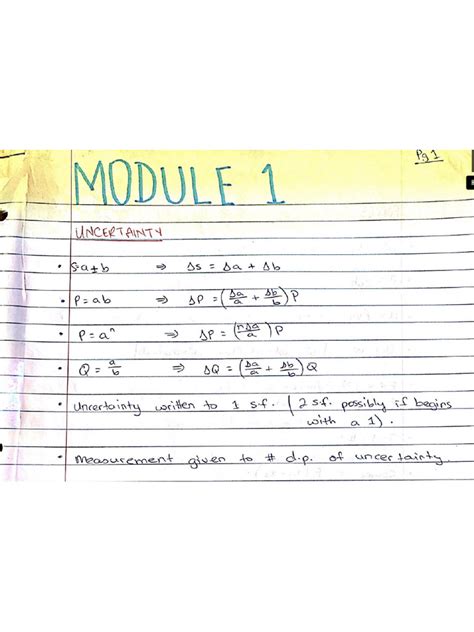 Pg 1
MODULE 1
UNCERTAINTY
• S=a±b ⇒ Δs = Δa + Δb
• P=ab ⇒ ΔP = (Δa/a + Δb/b)P
• P=aⁿ ⇒ ΔP = (nΔa/a)P
• Q = a/b ⇒ ΔQ = (Δa/a + Δb/b)Q
• Uncertainty written to 1 s.f. (2 s.f. possibly if begins
with a 1).
• Measurement given to # d.p. of uncertainty.